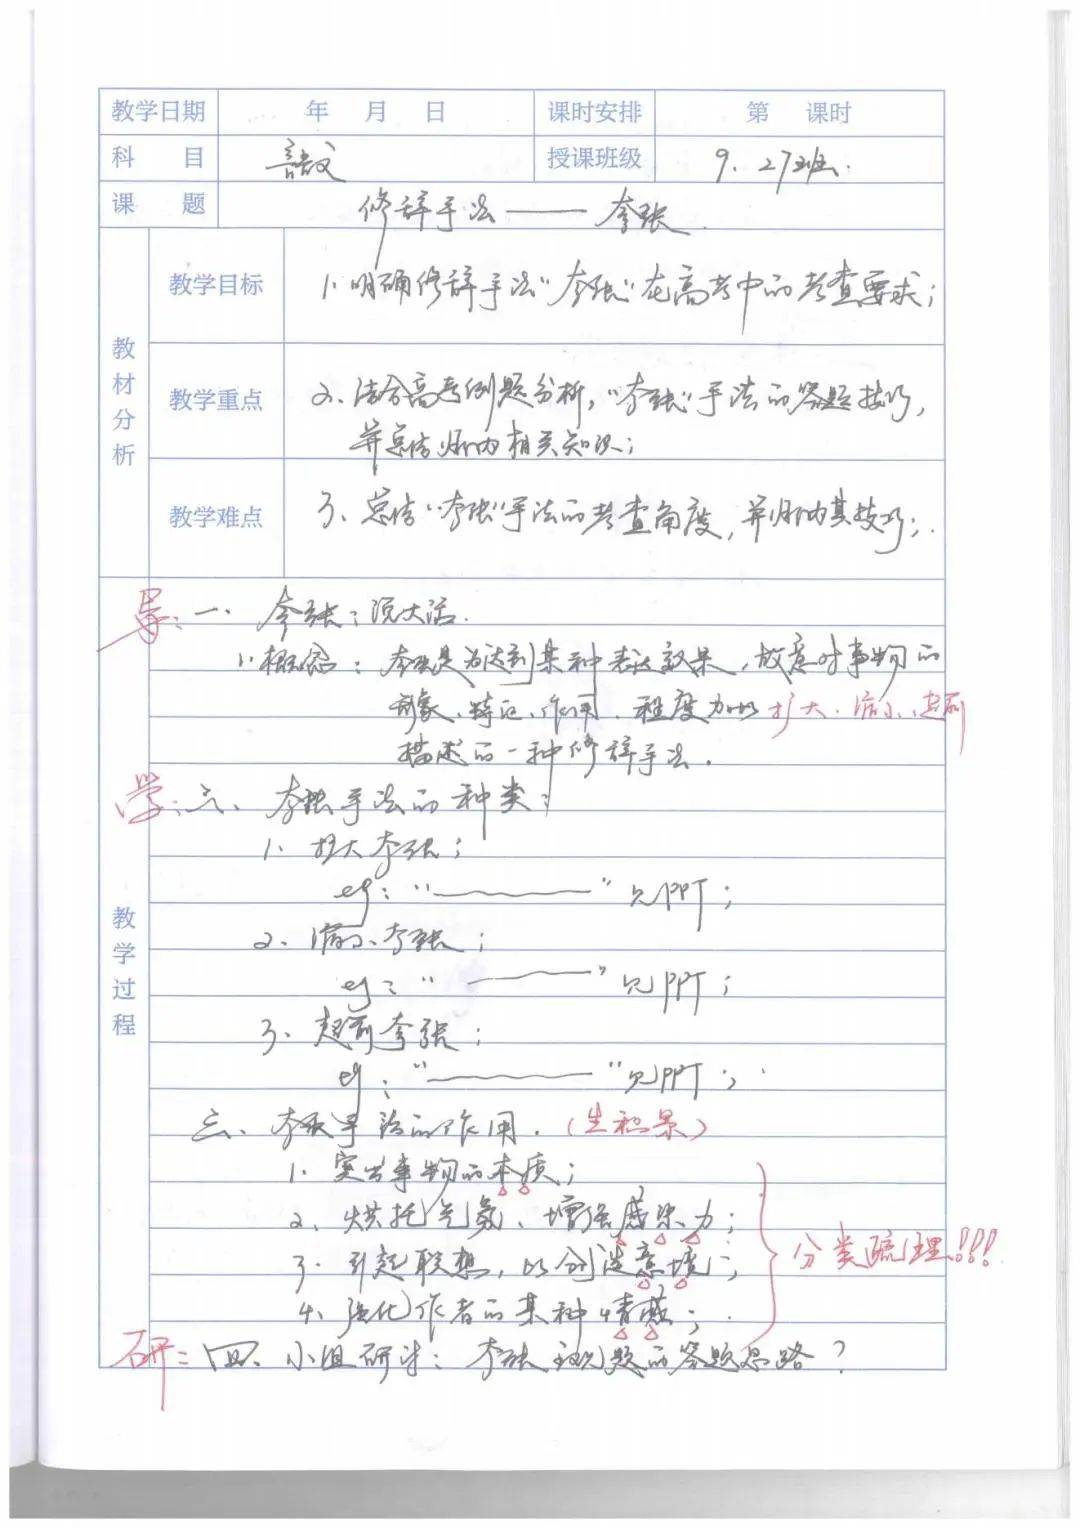 教学日期 年 月 日 课时安排 第 课时
科 目 语文 授课班级 9、27班.
课 题 修辞手法——夸张.
教材分析
教学目标 1、明确修辞手法“夸张”在高考中的考查要求；
教学重点 2、结合高考例题分析，“夸张”手法的答题技巧，
并总结归纳相关知识；
教学难点 3、总结“夸张”手法的考查角度，并归纳其技巧；
教学过程
导：一、夸张：说大话.
1、概念：夸张是为达到某种表达效果，故意对事物的
形象、特征、作用、程度加以扩大、缩小、超前
描述的一种修辞手法.
学：二、夸张手法的种类：
1、扩大夸张；
eg：“———”见PPT；
2、缩小夸张；
eg：“———”见PPT；
3、超前夸张；
eg：“———”见PPT；
三、夸张手法的作用.（生积累）
1、突出事物的本质；
2、烘托气氛、增强感染力；
3、引起联想，以创造意境；
4、强化作者的某种情感；
分类疏理!!!
研：四、小组研讨：夸张主观题的答题思路？